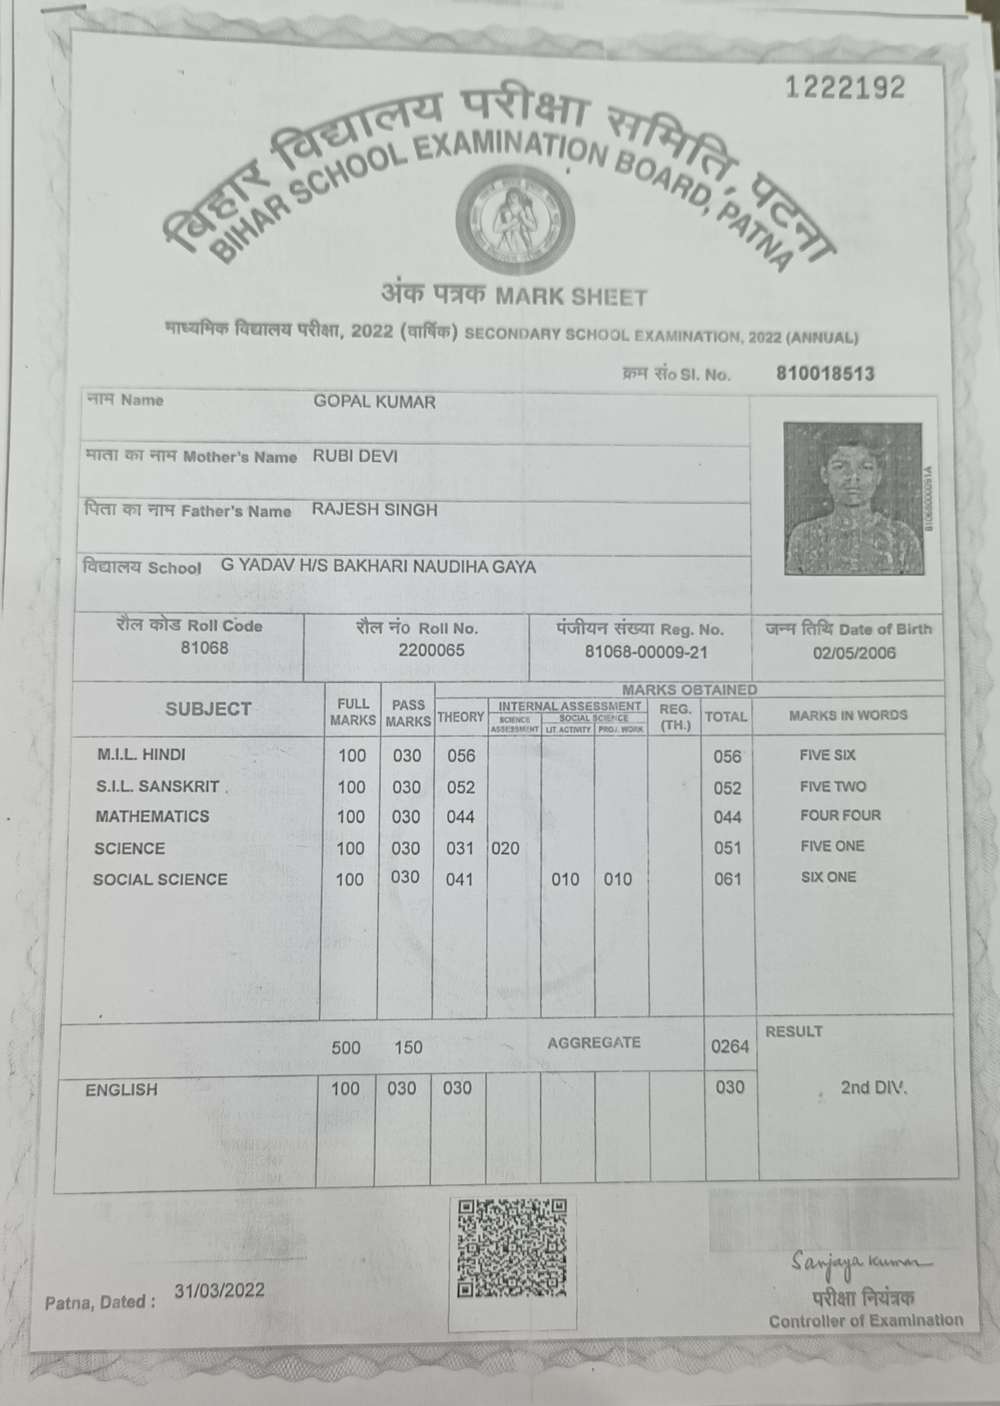 1222192
बिहार विद्यालय परीक्षा समिति, पटना
BIHAR SCHOOL EXAMINATION BOARD, PATNA
अंक पत्रक MARK SHEET
माध्यमिक विद्यालय परीक्षा, 2022 (वार्षिक) SECONDARY SCHOOL EXAMINATION, 2022 (ANNUAL)
क्रम सं० Sl. No. 810018513
नाम Name GOPAL KUMAR
माता का नाम Mother's Name RUBI DEVI
पिता का नाम Father's Name RAJESH SINGH
विद्यालय School G YADAV H/S BAKHARI NAUDIHA GAYA
रौल कोड Roll Code रौल नं० Roll No. पंजीयन संख्या Reg. No. जन्म तिथि Date of Birth
81068 2200065 81068-00009-21 02/05/2006
SUBJECT FULL MARKS PASS MARKS MARKS OBTAINED
THEORY INTERNAL ASSESSMENT REG. (TH.) TOTAL MARKS IN WORDS
SCIENCE ASSESSMENT SOCIAL SCIENCE
LIT ACTIVITY PROJ. WORK
M.I.L. HINDI 100 030 056 056 FIVE SIX
S.I.L. SANSKRIT 100 030 052 052 FIVE TWO
MATHEMATICS 100 030 044 044 FOUR FOUR
SCIENCE 100 030 031 020 051 FIVE ONE
SOCIAL SCIENCE 100 030 041 010 010 061 SIX ONE
500 150 AGGREGATE 0264 RESULT
ENGLISH 100 030 030 030 2nd DIV.
Patna, Dated : 31/03/2022
Sanjaya Kumar
परीक्षा नियंत्रक
Controller of Examination